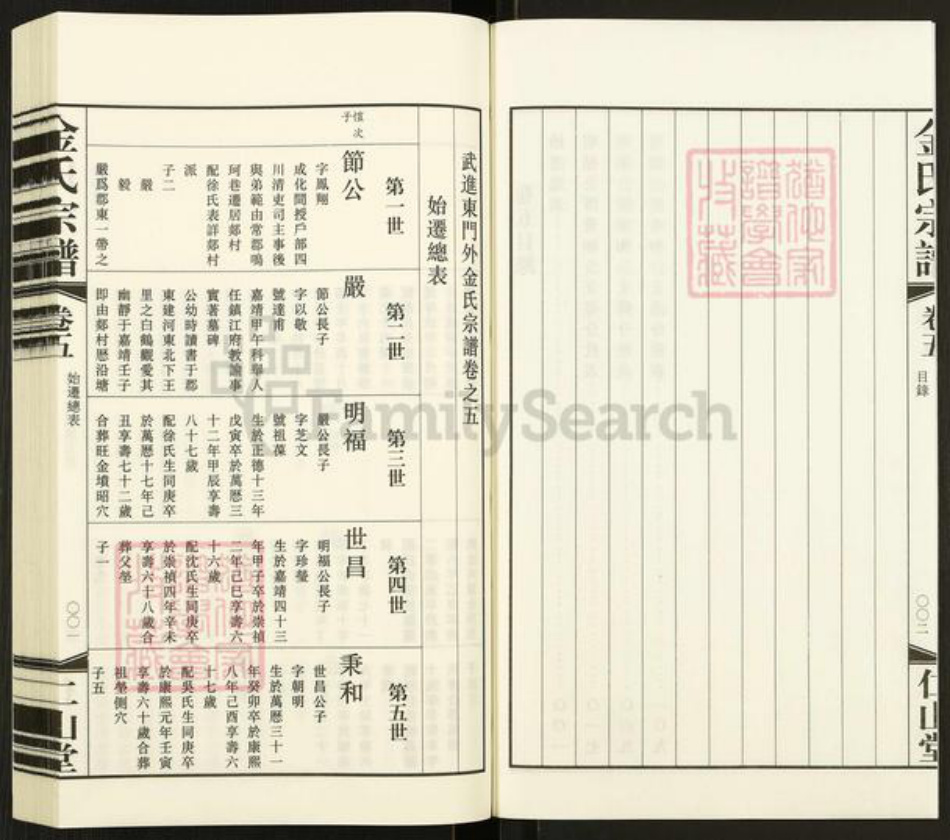 金氏宗譜
卷五
目錄
〇〇二
仁山堂
猶他家譜學會收藏
武進東門外金氏宗譜卷之五
始遷總表
第一世
第二世
第三世
第四世
第五世
愷次子
節公
字鳳翔
成化間授戶部四
川清吏司主事後
與弟範由常郡鳴
珂巷遷居鄰村
配徐氏表詳鄰村
派
子二
嚴
毅
嚴爲郡東一帶之
嚴
節公長子
字以敬
號達甫
嘉靖甲午科舉人
任鎮江府教諭事
實著墓碑
公幼時讀書于郡
東建河東北下王
里之白鶴觀愛其
幽靜于嘉靖壬子
即由鄰村歷沿塘
明福
嚴公長子
字芝文
號祖葆
生於正德十三年
戊寅卒於萬曆三
十二年甲辰享壽
八十七歲
配徐氏生同庚卒
於萬曆十七年己
丑享壽七十二歲
合葬旺金墳昭穴
世昌
明福公長子
字珍瑩
生於嘉靖四十三
年甲子卒於崇禎
二年己巳享壽六
十六歲
配沈氏生同庚卒
於崇禎四年辛未
享壽六十八歲合
葬父塋
子一
秉和
世昌公子
字朝明
生於萬曆三十一
年癸卯卒於康熙
八年己酉享壽六
十七歲
配吳氏生同庚卒
於康熙元年壬寅
享壽六十歲合葬
祖塋側穴
子五
金氏宗譜
卷五
始遷總表
〇〇一
仁山堂
FamilySearch